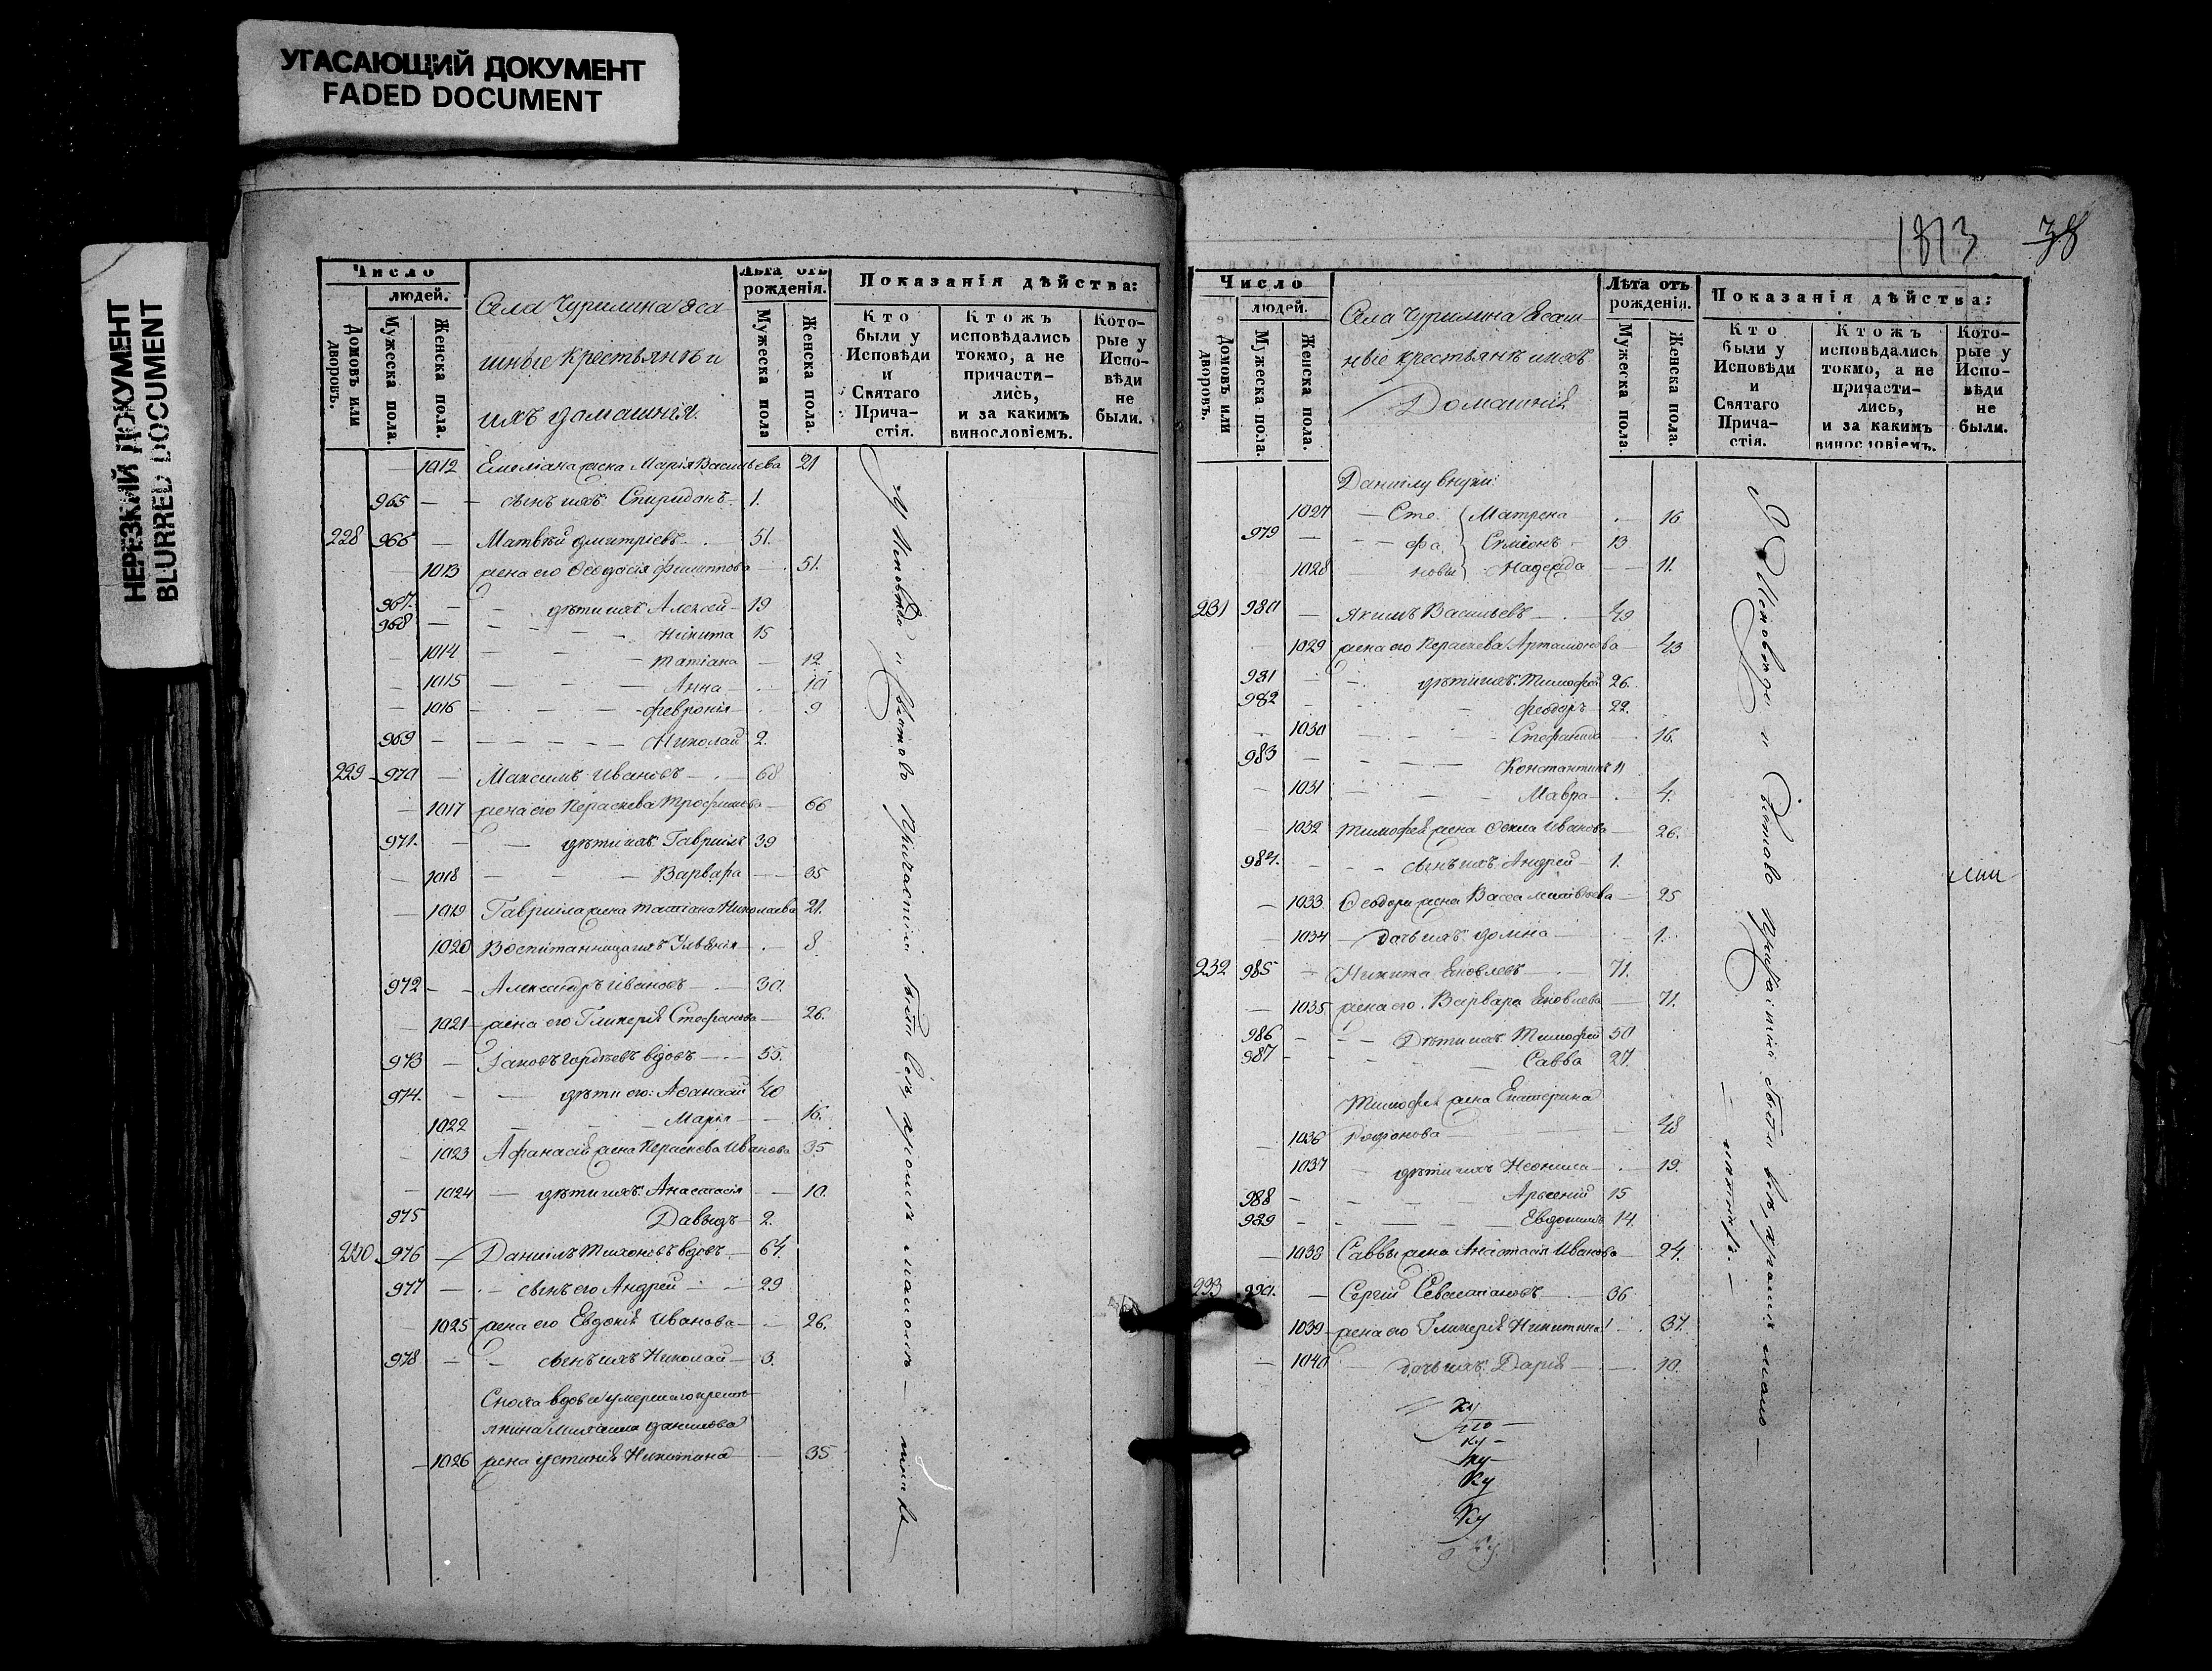 УГАСАЮЩИЙ ДОКУМЕНТ
FADED DOCUMENT
НЕРЕЗКИЙ ДОКУМЕНТ
BLURRED DOCUMENT
Число
людей.
Домовъ или дворовъ.
Мужеска пола.
Женска пола.
Села Чурилина Яса
шные крестьянѣ и
ихъ домашнія.
Лѣта отъ рожденія.
Мужеска пола
Женска пола.
Показанія дѣйства:
Кто были у Исповѣди и Святаго Прича-стія.
Ктожъ исповѣдались токмо, а не причасти-лись, и за какимъ винословіемъ.
Кото-рые у Испо-вѣди не были.
1012 Емеліана жена Марія Васильева 21
965 — сынъ ихъ Спиридонъ 1.
228 966 — Матвѣй Дмитріевъ 51.
1013 жена его Ѳеодосія Филиппова 51.
967. — дѣти ихъ Алексей 19
968 — Никита 15
1014 — Татіана 12
1015 — Анна 10
1016 — Февронія 9
969 — Николай 2.
229 970 — Максимъ Ивановъ 68
1017 жена его Параскева Трофимова 66
971. — дѣти ихъ Гавріилъ 39
1018 — Варвара 35
1019 Гавріила жена Татіана Николаева 21.
1020 Воспитанница ихъ 8
972 — Александръ Ивановъ 30.
1021 жена его Гликерія Стефанова 26.
973 — Іаковъ Гордѣевъ вдовъ 55.
974. — дѣти его: Аѳанасій 40
1022 — Марія 16.
1023 Афанасій жена Параскева Иванова 35
1024 — дѣти ихъ: Анастасія 10.
975 Давыдъ 2.
230 976 — Даніилъ Тихоновъ вдовъ 64.
977 — сынъ его Андрей 29
1025 жена его Евдокія Иванова 26.
978 — сынъ ихъ Николай 3.
Сноха вдова умершаго кресть
янина Михаила Данилова
1026 жена Устинія Никитина 35
У Исповѣди и Святаго Причастія были всѣ, кромѣ
1813 38
Число
людей.
Домовъ или дворовъ.
Мужеска пола
Женска пола.
Села Чурилина Ясаш
ные крестьянѣ и ихъ
Домашнія
Лѣта отъ рожденія.
Мужеска пола
Женска пола.
Показанія дѣйства:
Кто были у Исповѣди и Святаго Прича-стія.
Ктожъ исповѣдались токмо, а не причасти-лись, и за какимъ винословіемъ.
Кото-рые у Испо-вѣди не были.
Даніилу внуки:
1027 — Сте Матрена 16
979 — фа Симеонъ 13
1028 новы Надежда 11.
231 980 — Якимъ Васильевъ 49
1029 жена его Параскева Артамонова 43
981 — дѣти ихъ: Тимофей 26.
982 — Феодоръ 22.
1030 — Стефанида 16.
983 — Константинъ 11
1031 — Мавра 4.
1032 Тимофея жена Ѳекла Иванова 26.
984. — сынъ ихъ Андрей 1.
1033 Ѳеодора жена Васса 25
1034 — дочь ихъ Домна 1.
232 985 — Никита Яковлевъ 71.
1035 жена его Варвара Яковлева 71.
986 — Дѣти ихъ Тимофей 50
987 — Савва 27.
Тимофея жена Екатерина
1036 48
1037 — дѣти ихъ Неонила 19.
988 — Арсеній 15
989 — Евдокимъ 14.
1038 Саввы жена Анастасія Иванова 24.
233 990. — Сергій Севастіановъ 36
1039 жена его Гликерія Никитина 37.
1040 — дочь ихъ Дарія 10.
У Исповѣди и Святаго Причастія были всѣ, кромѣ